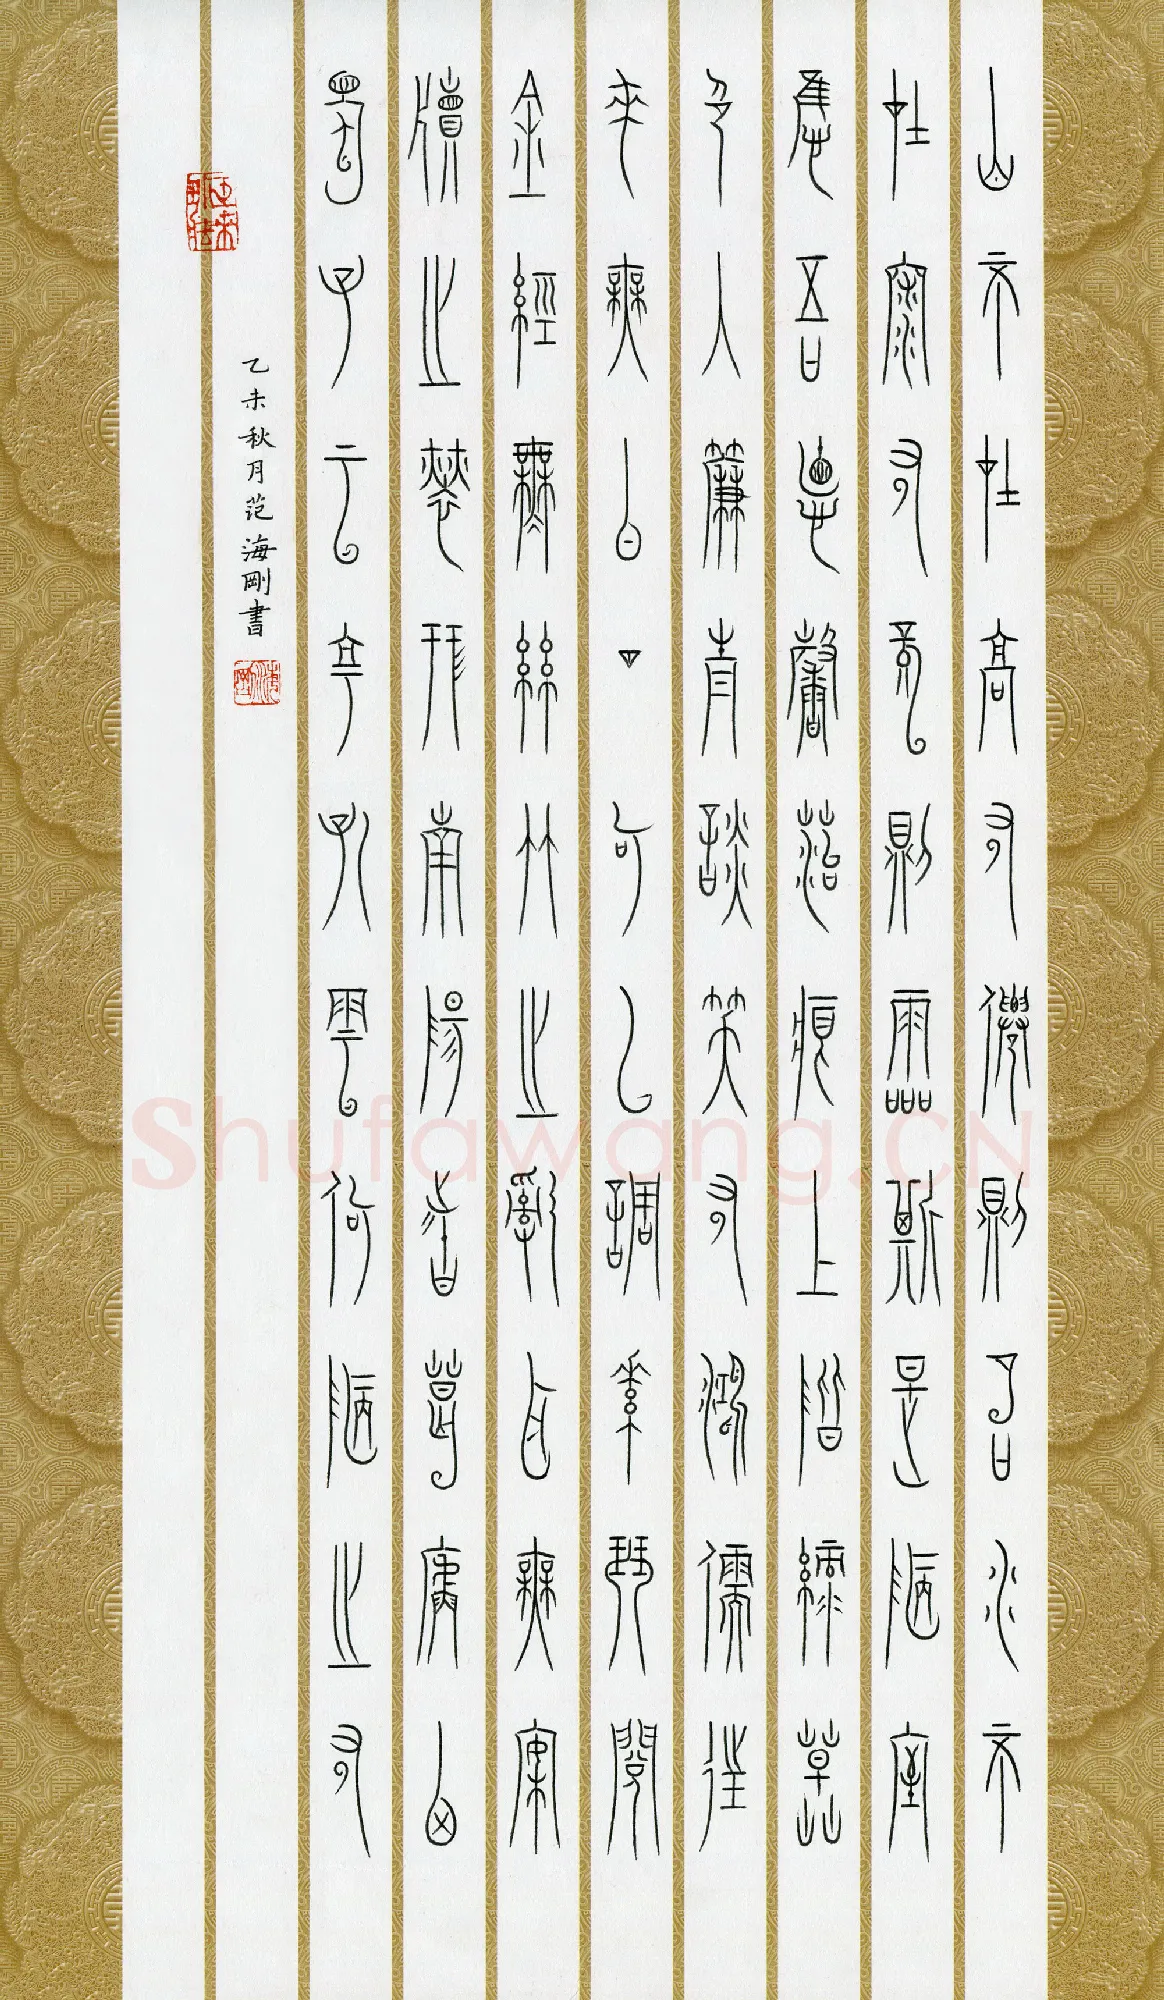 山不在高有僊則名水不
在深有龍則靈斯是陋室
惟吾德馨苔痕上階綠草
色入簾青談笑有鴻儒往
來無白丁可以調素琴閱
金經無絲竹之亂耳無案
牘之勞形南陽諸葛廬西
蜀子云亭孔雲何陋之有
乙未秋月范海剛書
Shufawang.CN